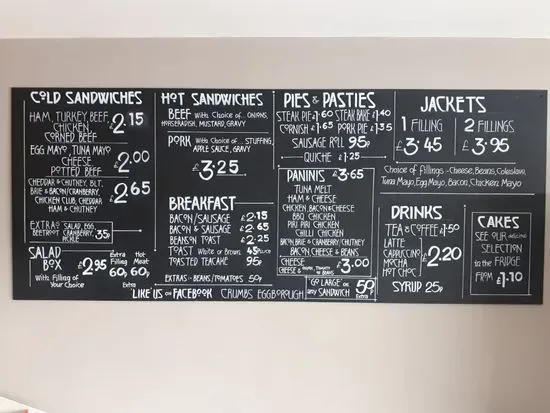 COLD SANDWICHES
HAM, TURKEY, BEEF,
CHICKEN
CORNED BEEF
£2.15
EGG MAYO, TUNA MAYO
CHEESE
POTTED BEEF
£2.00
CHEDDAR & CHUTNEY, BLT.
BRIE & BACON/CRANBERRY
CHICKEN CLUB, CHEDDAR
HAM & CHUTNEY
£2.65
EXTRAS SALAD, EGG,
BEETROOT CRANBERRY
PICKLE
35p
SALAD
BOX
£2.95
With Filling of
Your Choice
Extra
Filling
60p
Hot
Meat
60p
Extra
HOT SANDWICHES
BEEF With Choice of... ONIONS,
HORSERADISH, MUSTARD, GRAVY
PORK With Choice of... STUFFING,
APPLE SAUCE, GRAVY
£3.25
BREAKFAST
BACON/SAUSAGE £2.15
BACON & SAUSAGE £2.65
BEANS ON TOAST £2.25
TOAST White or Brown 45p
TOASTED TEACAKE 95p
EXTRAS - BEANS/TOMATOES 50p
PIES & PASTIES
STEAK PIE £1.60 STEAK BAKE £1.40
CORNISH £1.65 PORK PIE £1.35
SAUSAGE ROLL 95p
QUICHE £1.25
PANINIS £3.65
TUNA MELT
HAM & CHEESE
CHICKEN, BACON & CHEESE
BBQ CHICKEN
PIRI PIRI CHICKEN
CHILLI CHICKEN
BACON, BRIE & CRANBERRY/CHUTNEY
BACON CHEESE & BEANS
CHEESE £3.00
CHEESE & ONION, TOMATO OR BEANS
'GO LARGE' ON
any SANDWICH
50p
Extra
JACKETS
1 FILLING
£3.45
2 FILLINGS
£3.95
Choice of Fillings - Cheese, Beans, Coleslaw,
Tuna Mayo, Egg Mayo, Bacon, Chicken Mayo
DRINKS
TEA & COFFEE £1.50
LATTE
CAPPUCCINO
MOCHA
HOT CHOC
£2.20
SYRUP 25p
CAKES
SEE OUR delicious
SELECTION
in the FRIDGE
FROM £1.10
'LIKE' US on FACEBOOK CRUMBS EGGBOROUGH